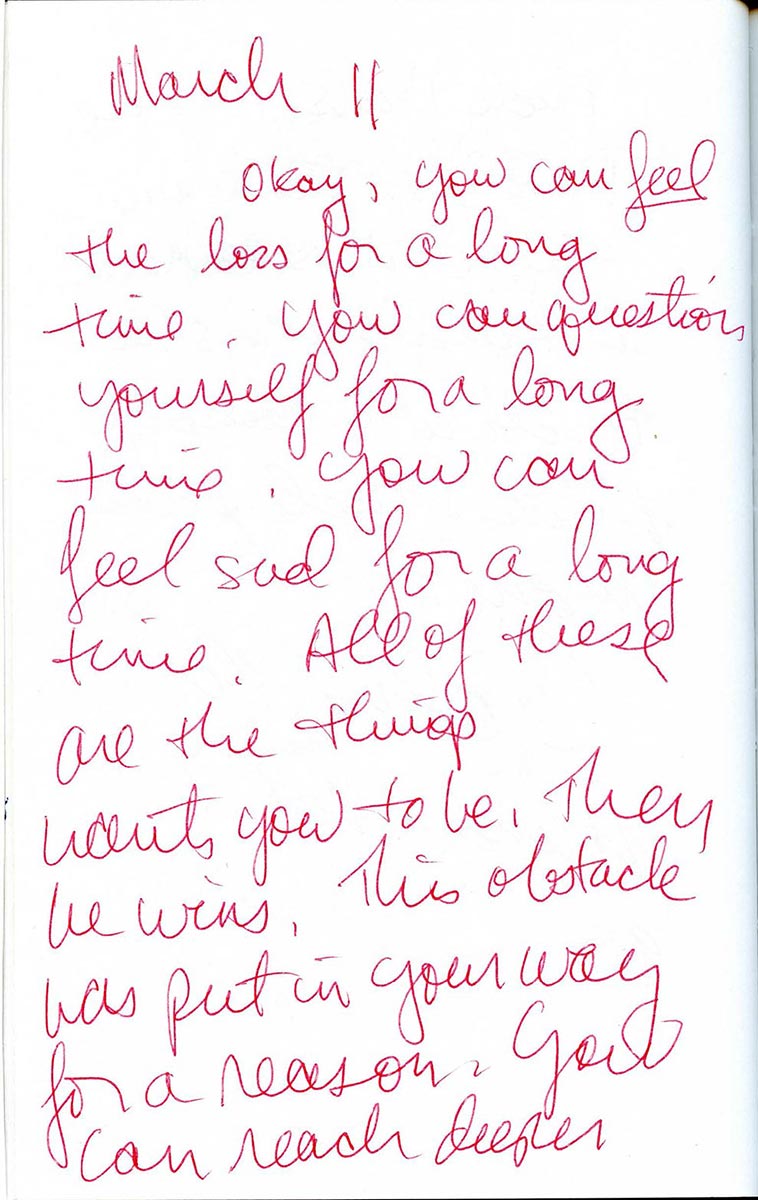 March 11
Okay, you can feel
the loss for a long
time. You can question
yourself for a long
time. You can
feel sad for a long
time. All of these
are the things
wants you to be. Then
he wins. This obstacle
was put in your way
for a reason. You
can reach deeper